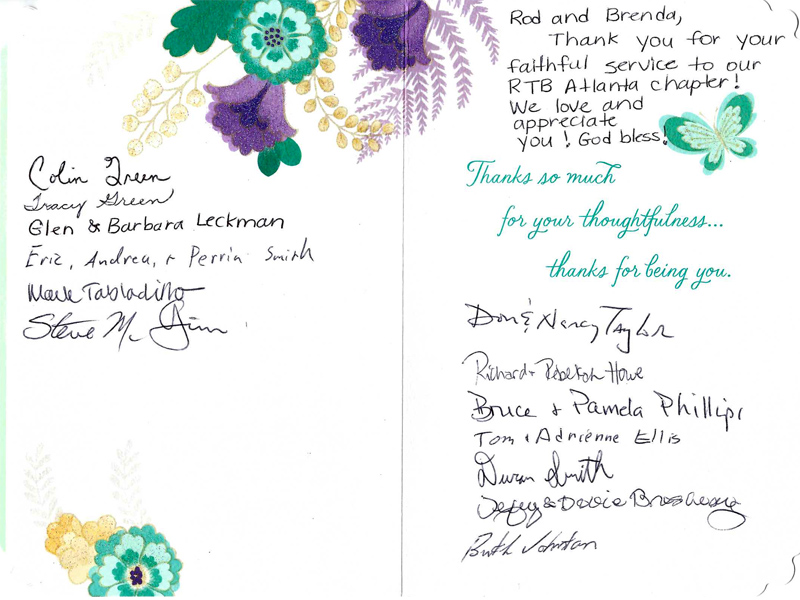 Colin Green
Tracy Green
Glen & Barbara Leckman
Eric, Andrea, + Perrin Smith
Mark Tabladillo
Steve M.
Rod and Brenda,
Thank you for your
faithful service to our
RTB Atlanta chapter!
We love and
appreciate
you! God bless!
Thanks so much
for your thoughtfulness...
thanks for being you.
Don & Nancy Taylor
Richard + Rebekah Howe
Bruce + Pamela Phillips
Tom + Adrienne Ellis
Smith
Johnston